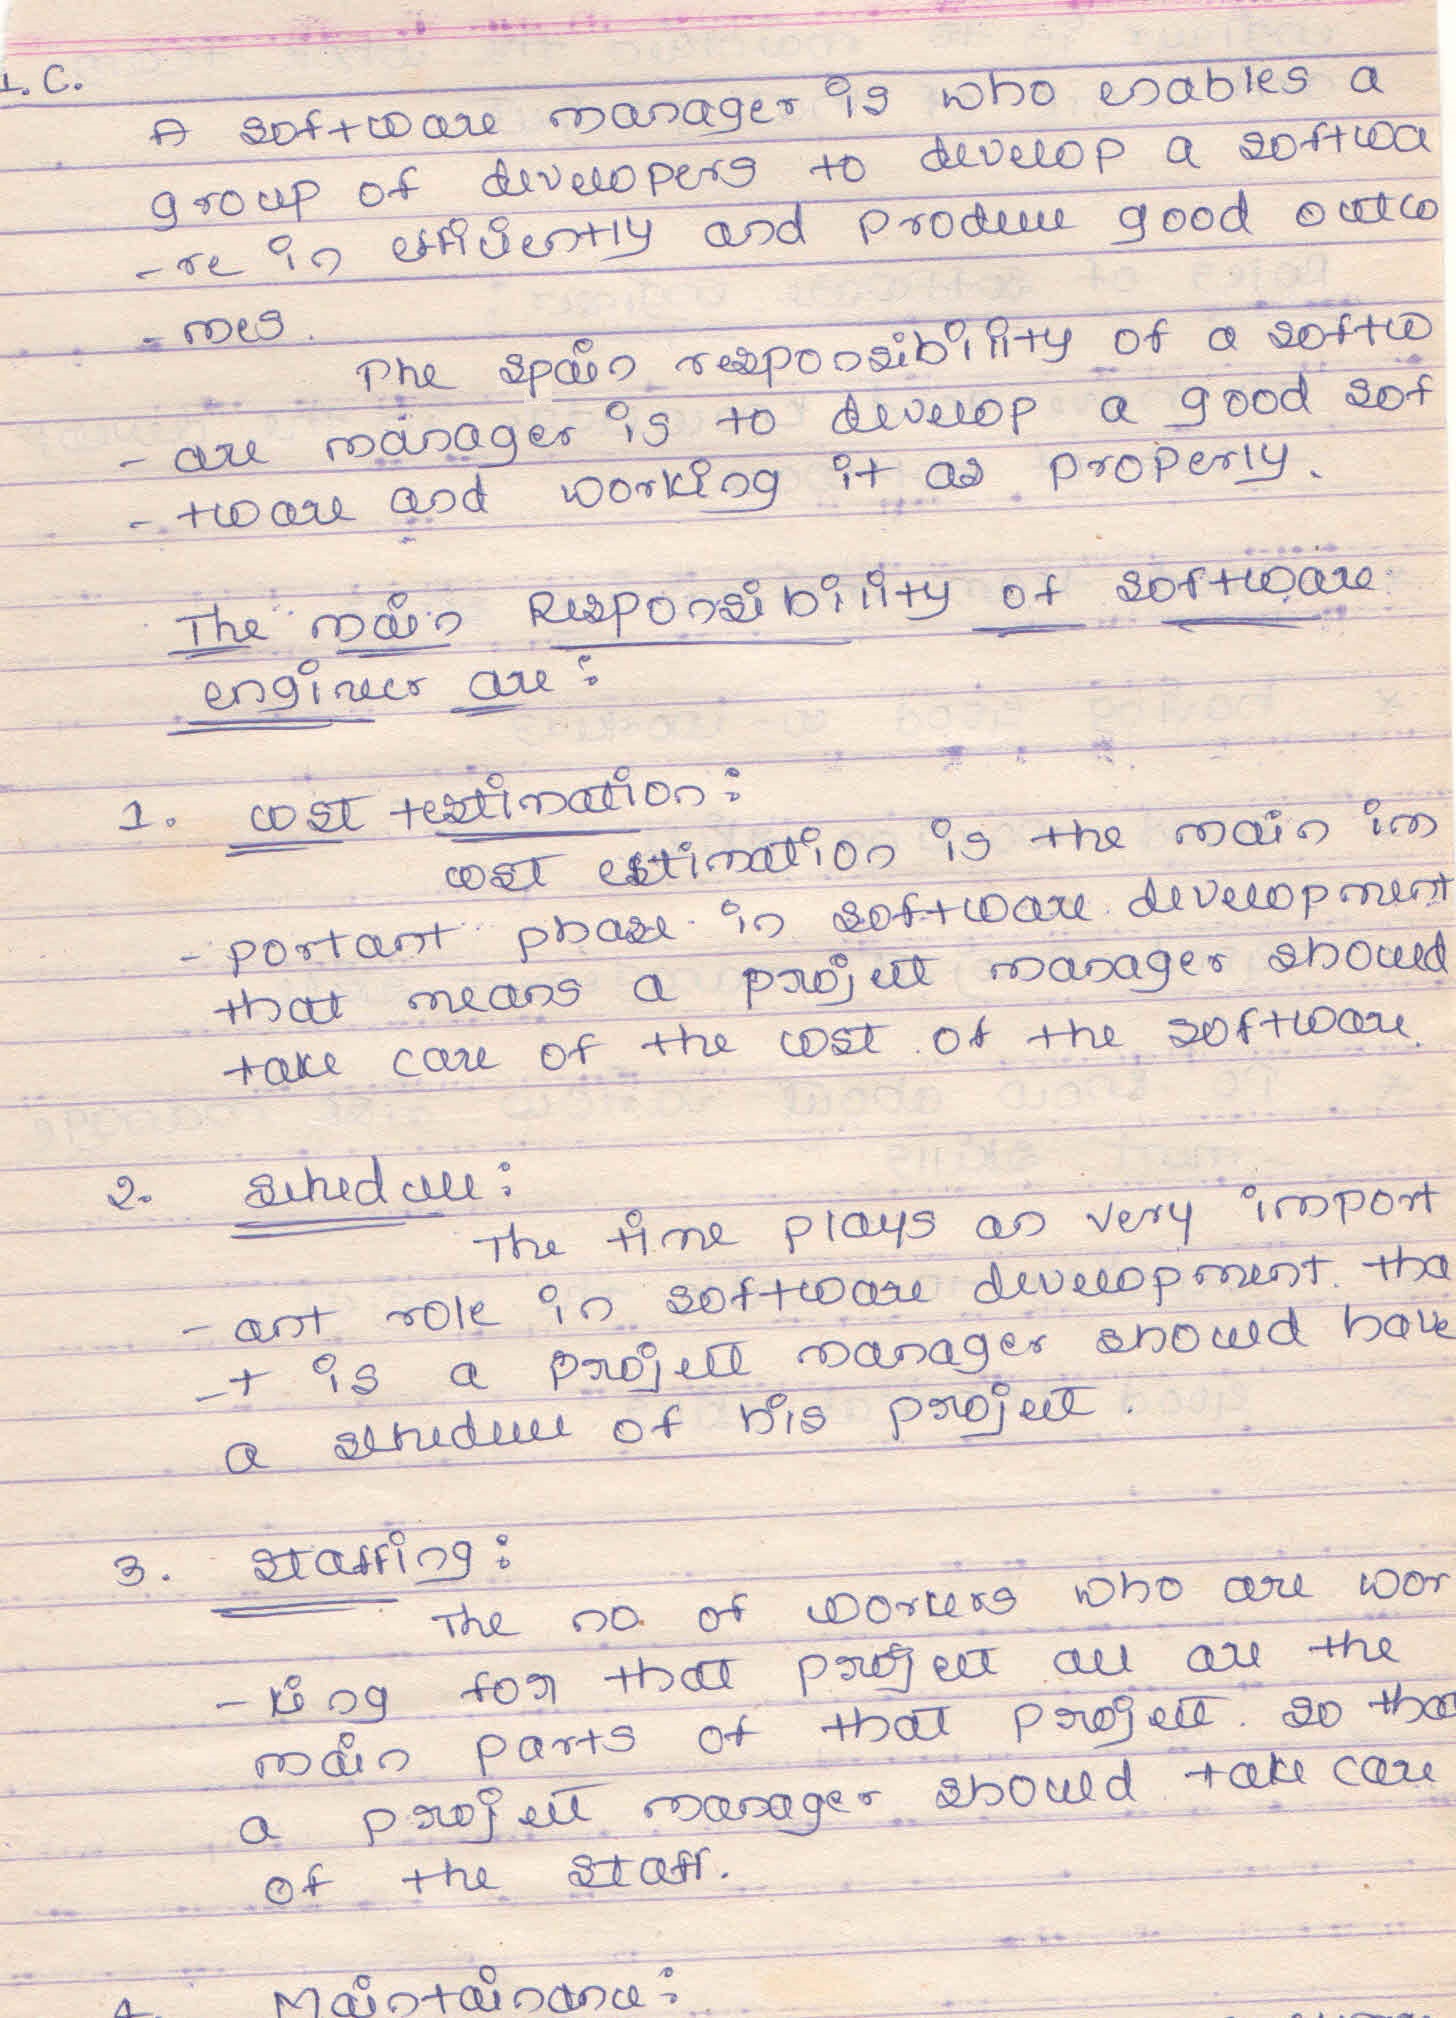 1. C.
A software manager is who enables a
group of developers to develop a softwa
- re in efficiently and produce good outco
- mes.
The spain responsibility of a softw
- are manager is to develop a good sof
- tware and working it as properly.
The main Responsibility of software
engineer are:
1. cost testimation:
cost estimation is the main im
- portant phase in software development
that means a project manager should
take care of the cost of the software.
2. schedule:
The time plays an very import
- ant role in software development. tha
- t is a project manager should have
a schedule of his project.
3. staffing:
The no. of workers who are wor
- king for that project all are the
main parts of that project. so that
a project manager should take care
of the staff.
4. Maintainance: